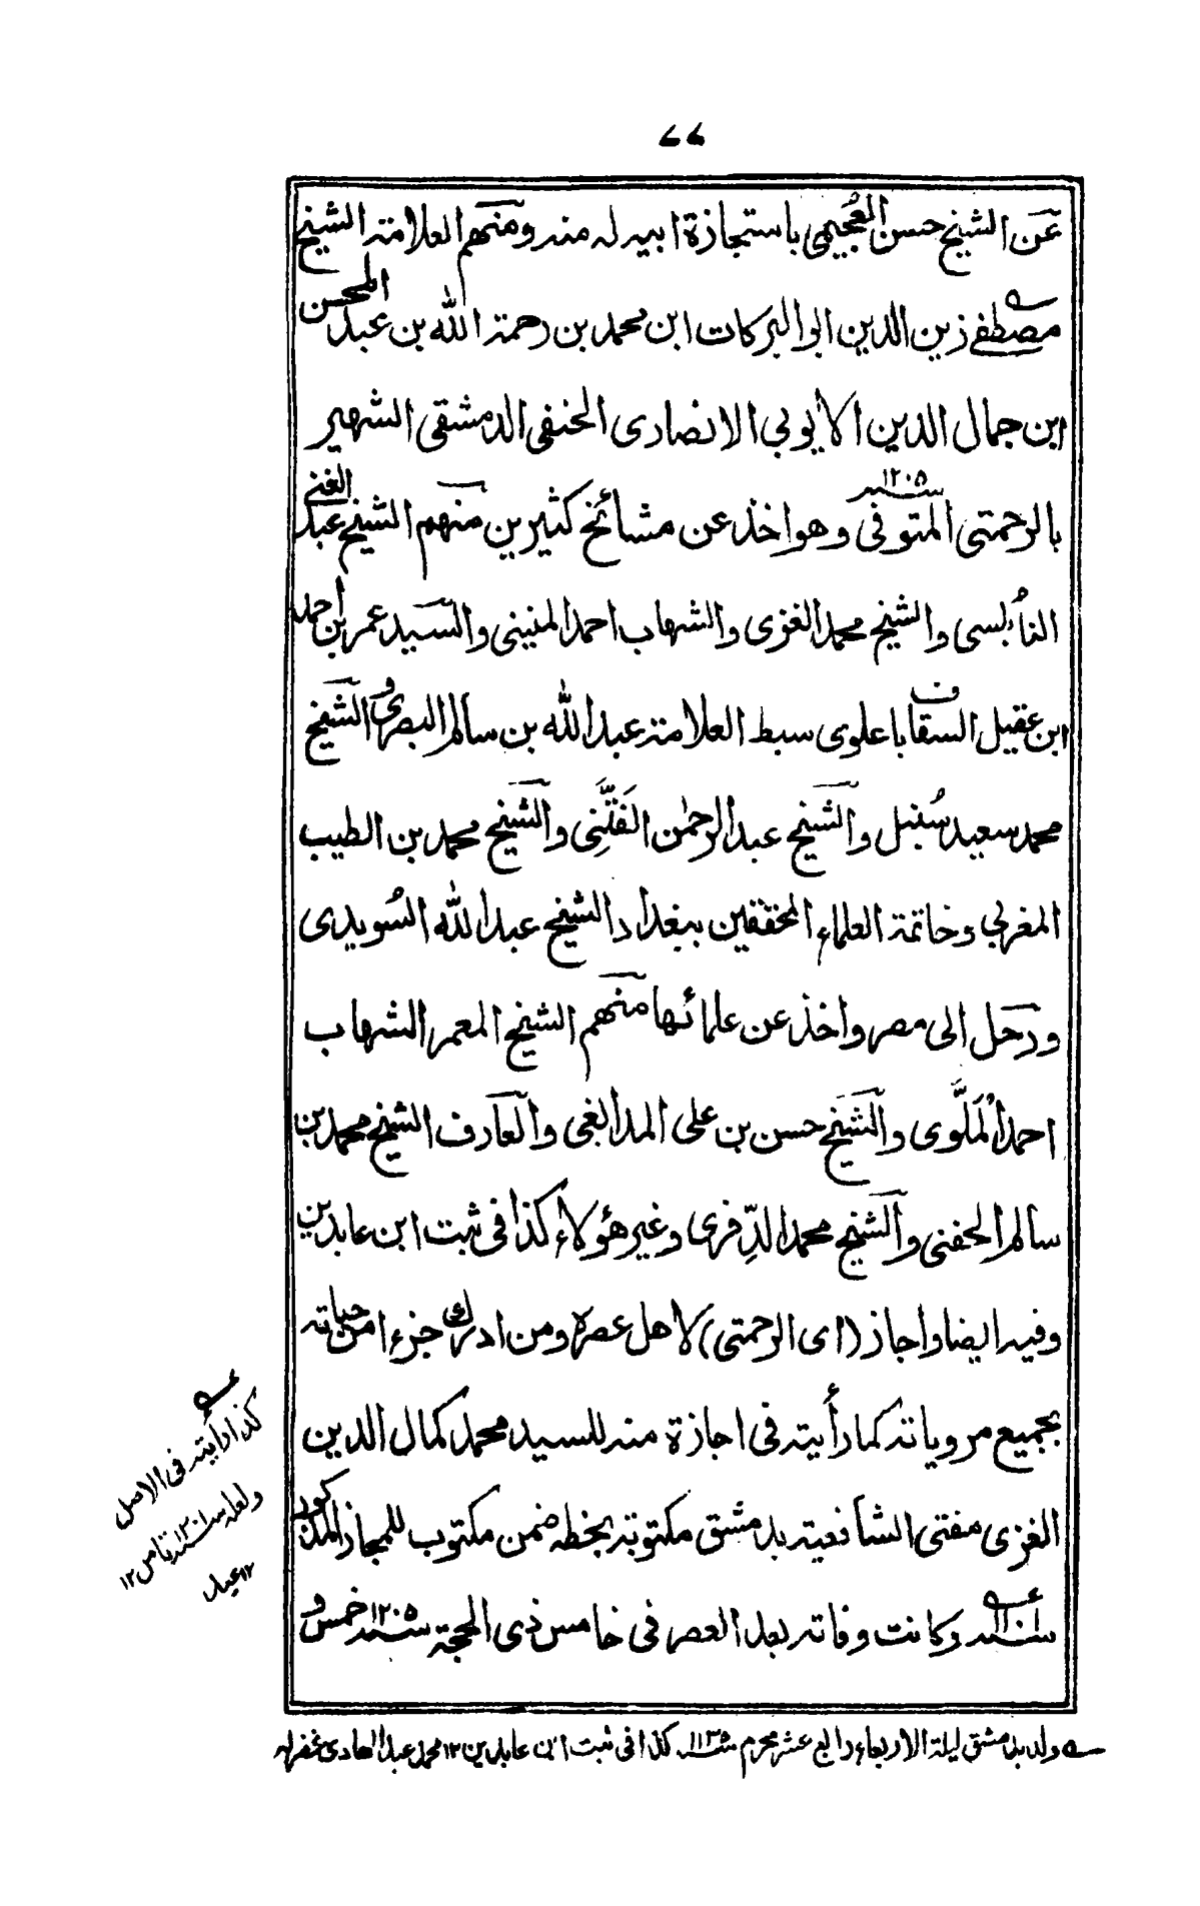 ٧٧
عن الشيخ حسن العُجيمي باستجازة ابيه له منه ومنهم العلامة الشيخ
مصطفے زين الدين ابو البركات ابن محمد بن رحمة الله بن عبد المحسن
ابن جمال الدين الايوبي الانصاری الحنفی الدمشقی الشهير
بالرحمتی المتوفی سنه ١٢٠٥ وهو اخذ عن مشائخ كثيرين منهم الشيخ عبد الغني
النابُلسی والشيخ محمد الغزی والشهاب احمد المنينی والسيد عمر بن احمد
ابن عقيل السقاف باعلوی سبط العلامة عبد الله بن سالم البصری و الشيخ
محمد سعيد سُنبل والشيخ عبد الرحمٰن الفَتَّنِی والشيخ محمد بن الطيب
المغربی وخاتمة العلماء المحققين ببغداد الشيخ عبد الله السُويدی
ورحل الی مصر واخذ عن علمائها منهم الشيخ المعمر الشهاب
احمد المَلَّوی والشيخ حسن بن علی المدابغی والعارف الشيخ محمد بن
سالم الحفنی والشيخ محمد الدِّفری وغير هؤلاء كذا فی ثبت ابن عابدين
وفيه ايضا واجاز (ای الرحمتی) لاهل عصره ومن ادرك جزءا من حياته
بجميع مروياته كما رأيته فی اجازة منه للسيد محمد كمال الدين
الغزی مفتی الشافعية بدمشق مكتوبة بخطه ضمن مكتوب للمجاز المذكور
وكانت وفاته بعد العصر فی خامس ذی الحجة سنه ١٢٠٥ خمس و
كذا رأيته فی الاصل
ولعله
١٢ عبد
ولد بدمشق ليلة الاربعاء رابع عشر محرم سنه ١١٣٥ كذا فی ثبت ابن عابدين ١٢ محمد عبد الهادی غفر له